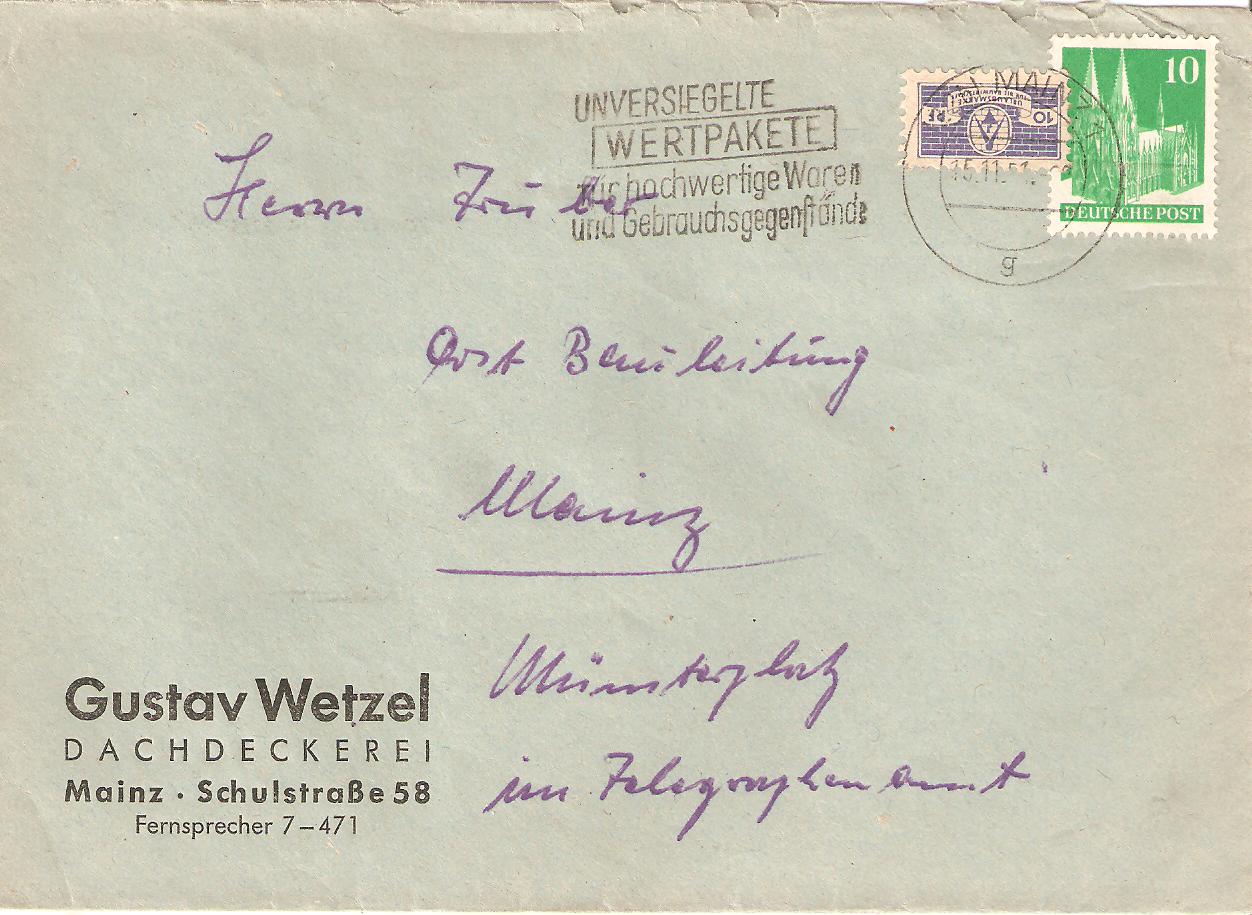 UNVERSIEGELTE
WERTPAKETE
für hochwertige Waren
und Gebrauchsgegenstände
MAINZ
15.11.51
g
10 Pf
URLAUBSMARKE
10
DEUTSCHE POST
Herrn
Post Bauleitung
Mainz
Münsterplatz
im Telegraphenamt
Gustav Wetzel
DACHDECKEREI
Mainz · Schulstraße 58
Fernsprecher 7–471